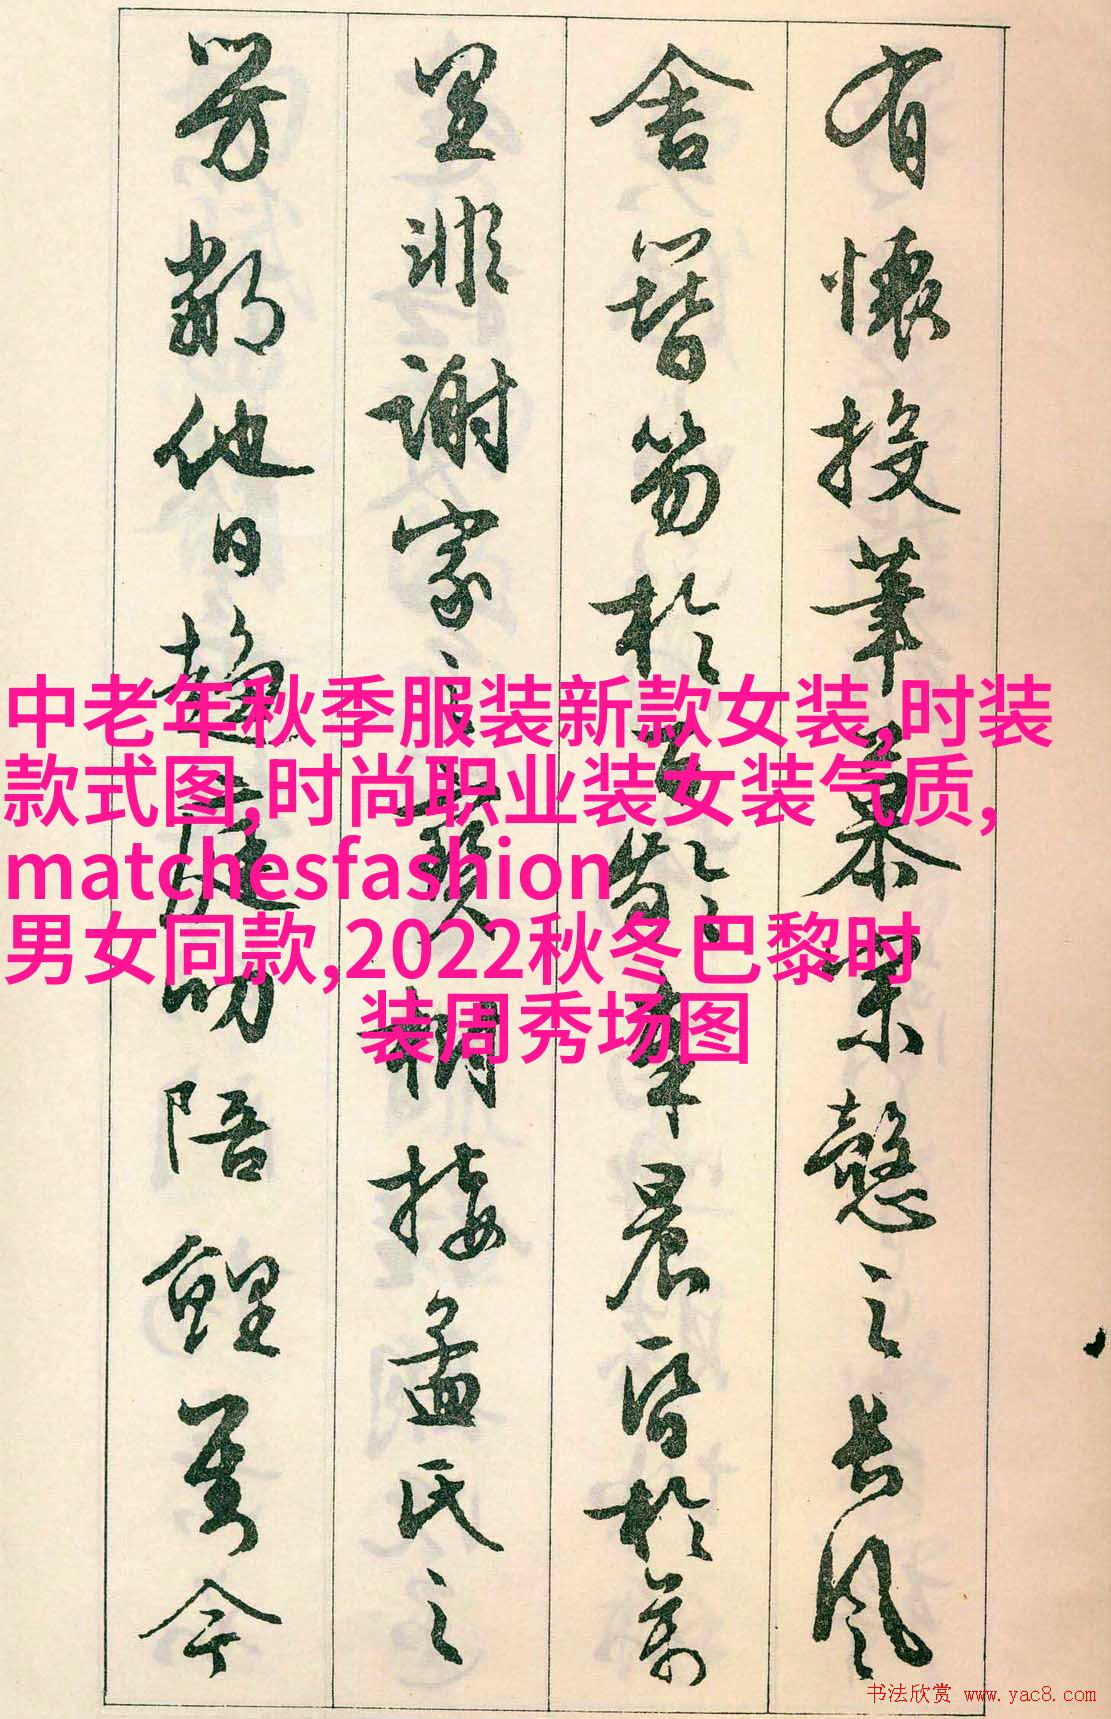 有懷投筆慕宗愨之長風
舍簪笏於百齡奉晨昏於萬
里非謝家之寶樹接孟氏之
芳鄰他日趨庭叨陪鯉對今
中老年秋季服装新款女装,时装
款式图,时尚职业装女装气质,
matchesfashion
男女同款,2022秋冬巴黎时
装周秀场图
书法欣赏 www.yac8.com